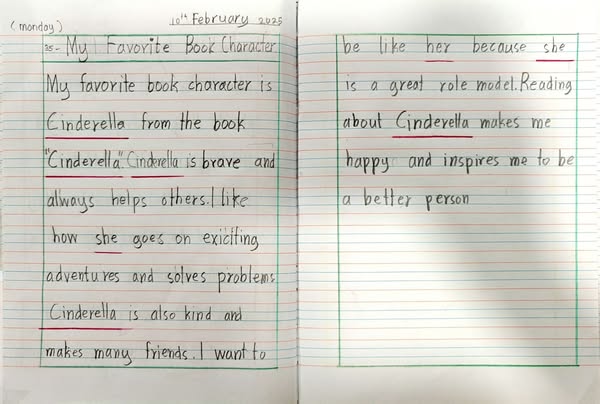 (monday)
10th February 2025
25- My Favorite Book Character
My favorite book character is
Cinderella from the book
"Cinderella". Cinderella is brave and
always helps others. I like
how she goes on exiciting
adventures and solves problems
Cinderella is also kind and
makes many friends. I want to
be like her because she
is a great role model. Reading
about Cinderella makes me
happy and inspires me to be
a better person